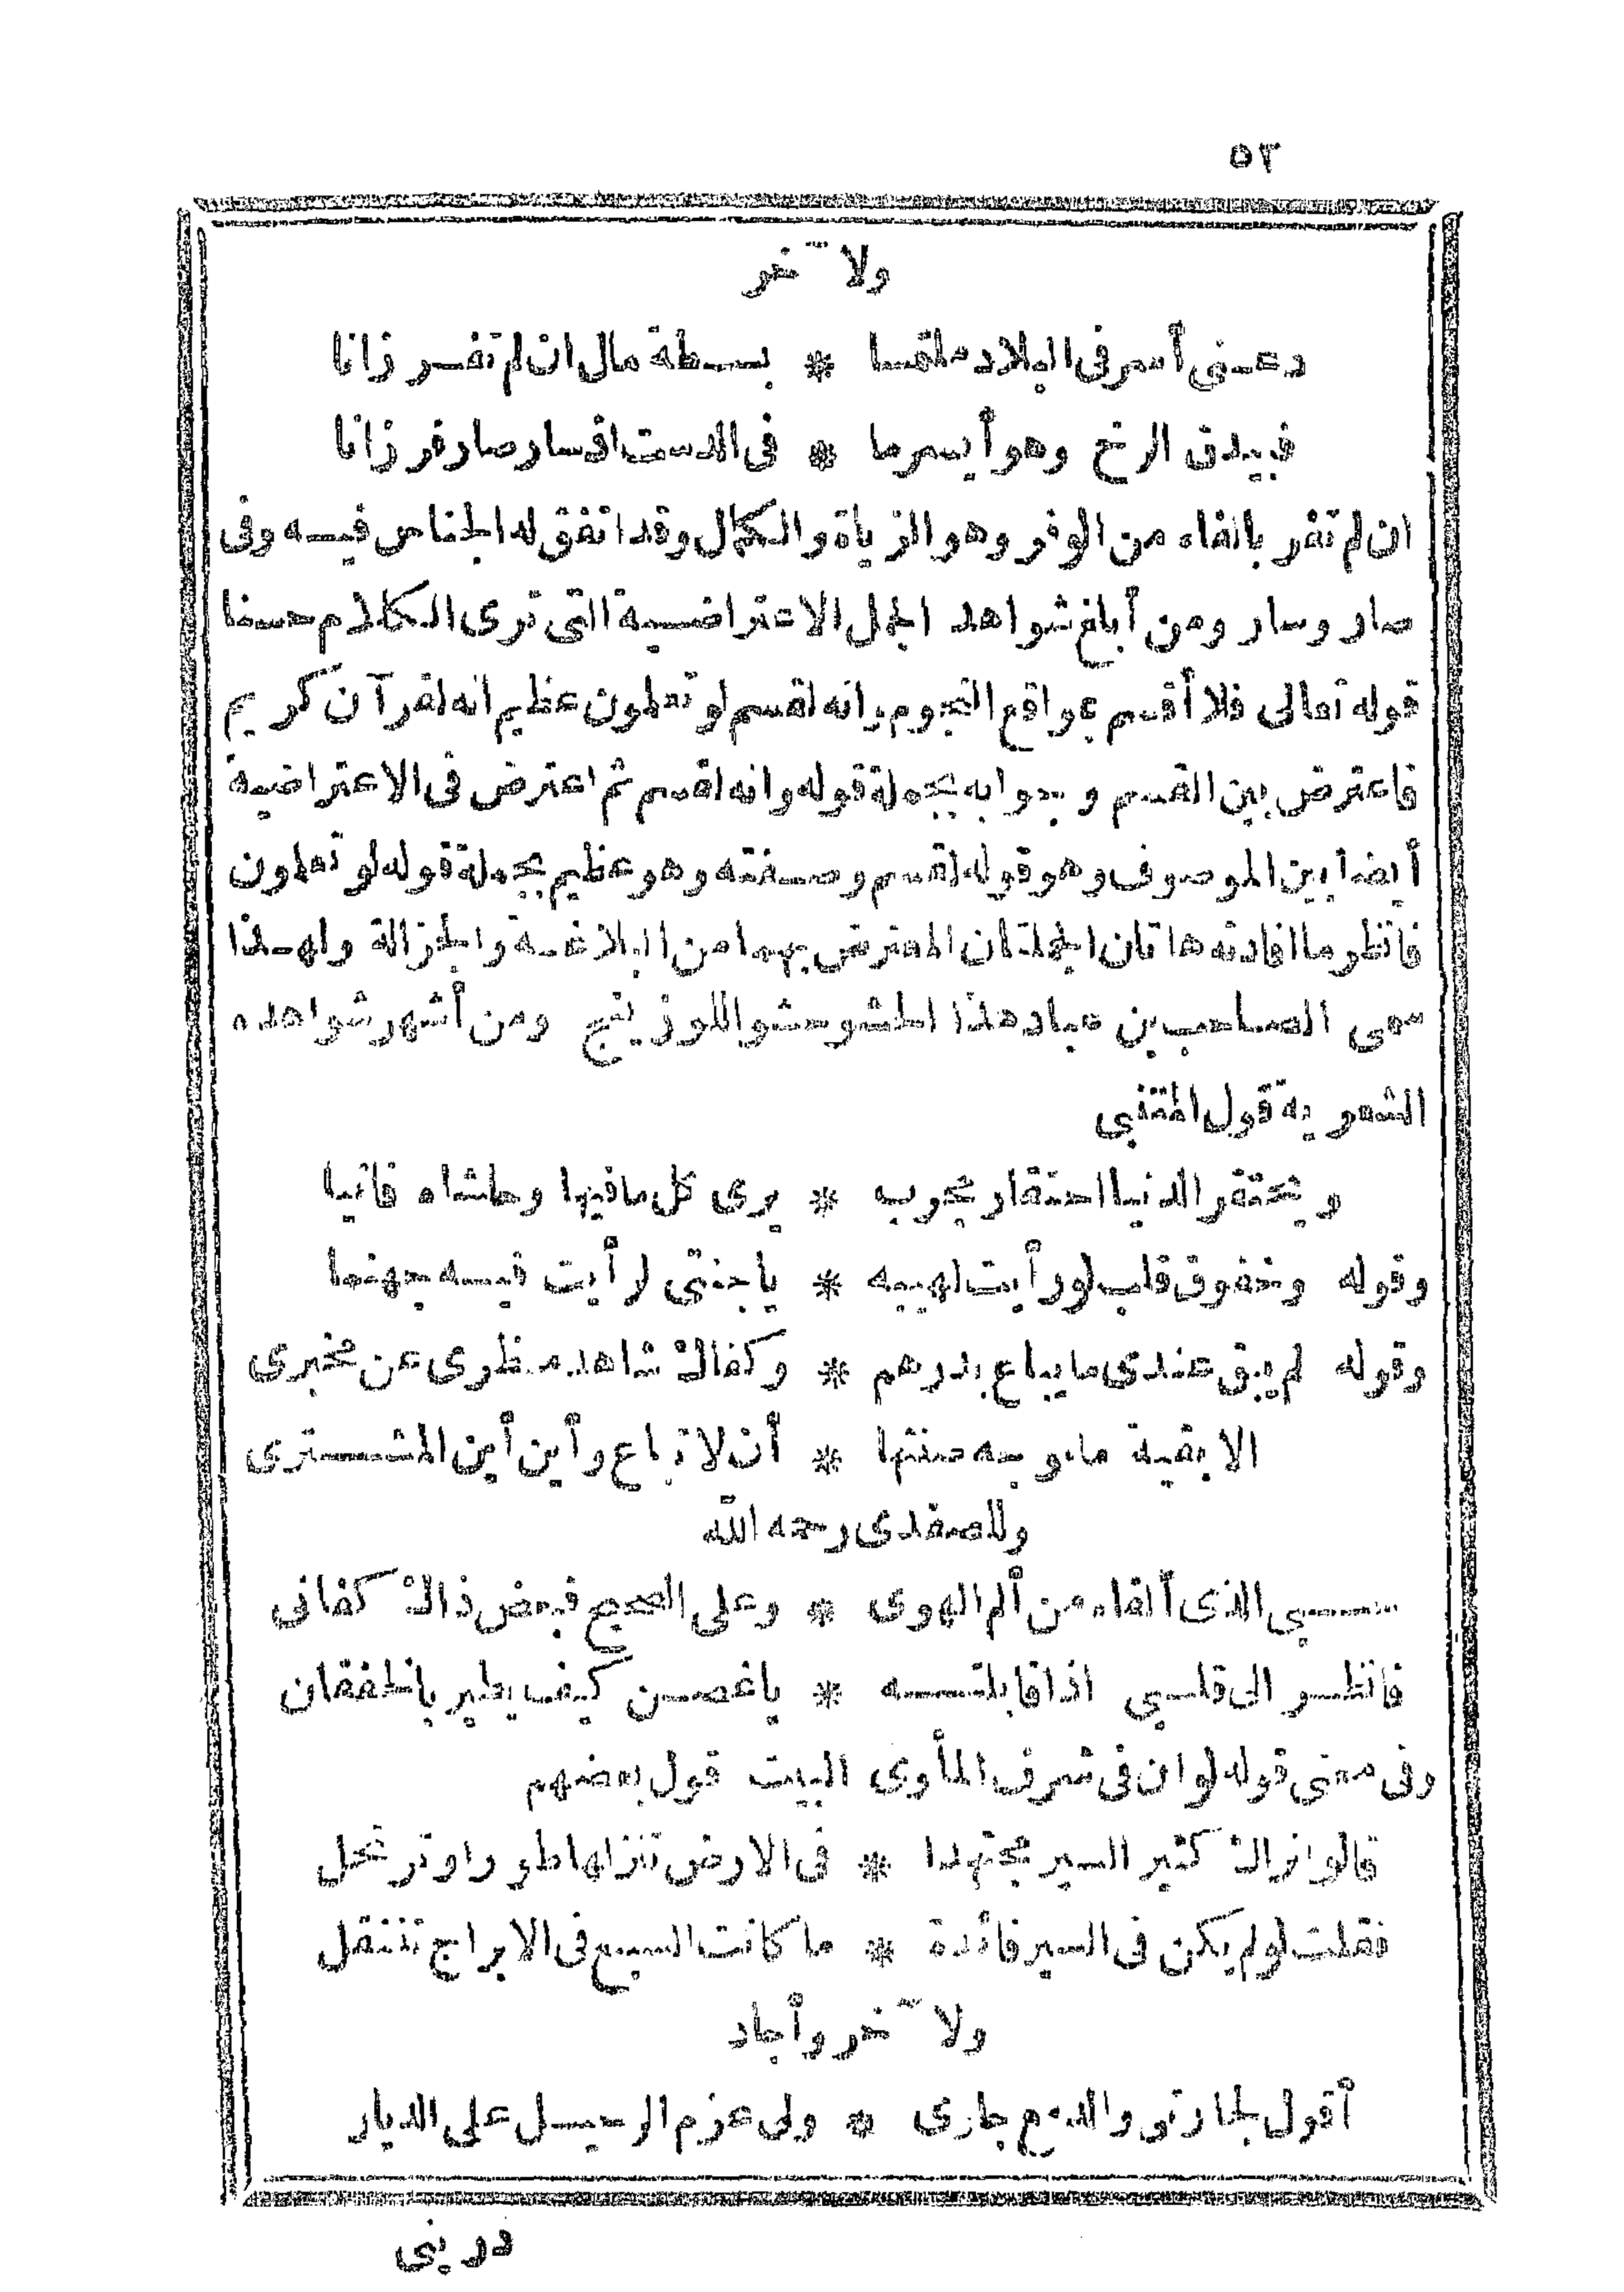 ٥٢
ولآخر
دعنى أسر فى البلاد ملتمسا * بسطة مال ان لم تفر زانا
فبيدق الرخ وهو أيسر ما * فى الدست اذ سار صار فرزانا
ان لم تفر بالفاء من الوفر وهو الزياة والكمال وقد اتفق له الجناس فيه وفى
صار وسار ومن أبلغ شواهد الجمل الاعتراضية التى ترى الكلام حسنا
قوله تعالى فلا أقسم بمواقع النجوم وانه لقسم لو تعلمون عظيم انه لقرآن كريم
فاعترض بين القسم وجوابه بجملة قوله وانه لقسم ثم اعترض فى الاعتراضية
أيضا بين الموصوف وهو قوله لقسم وصفته وهو عظيم بجملة قوله لو تعلمون
فانظر ما افادته هاتان الجملتان المعترض بهما من البلاغة والجزالة ولهذا
سمى الصاحب بن عباد هذا الحشو حشو اللوزينج ومن أشهر شواهده
الشعرية قول المتنبى
ويحتقر الدنيا احتقار مجرب * يرى كل ما فيها وحاشاه فانيا
وقوله وخفوق قلب لو رأيت لهيبه * ياجنتى لرأيت فيه جهنما
وقوله لم يبق عندى ما يباع بدرهم * وكفاك شاهد منظرى عن مخبرى
الا بقية ماء وجه صنتها * أن لا تباع وأين أين المشترى
وللصفدى رحمه الله
حسبى الذى ألقاه من ألم الهوى * وعلى الصحيح فبعض ذاك كفانى
فانظر الى قلبى اذا قابلته * ياغصن كيف يطير بالخفقان
وفى معنى قوله لو ان فى شرف المأوى البيت قول بعضهم
قالوا نراك كثير السير مجتهدا * فى الارض تنزلها طورا وترتحل
فقلت لو لم يكن فى السير فائدة * ما كانت السبع فى الابراج تنتقل
ولآخر وأجاد
أقول لجارتى والدمع جارى * ولى عزم الرحيل على الديار
ذرينى